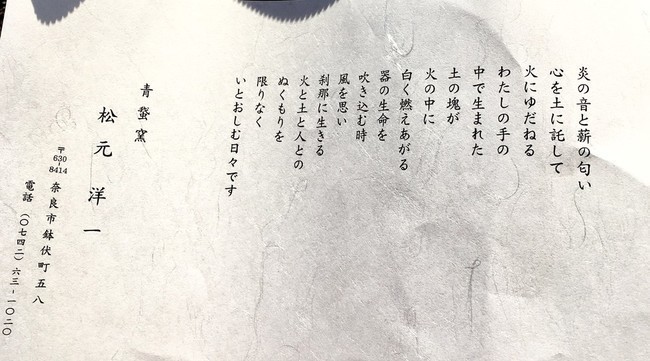 炎の音と薪の匂い
心を土に託して
火にゆだねる
わたしの手の
中で生まれた
土の塊が
火の中に
白く燃えあがる
器の生命を
吹き込む時
風を思い
刹那に生きる
火と土と人との
ぬくもりを
限りなく
いとおしむ日々です
青蛩窯
松元洋一
〒630-8414 奈良市鉢伏町五八
電話(〇七四二)六三-一〇二〇